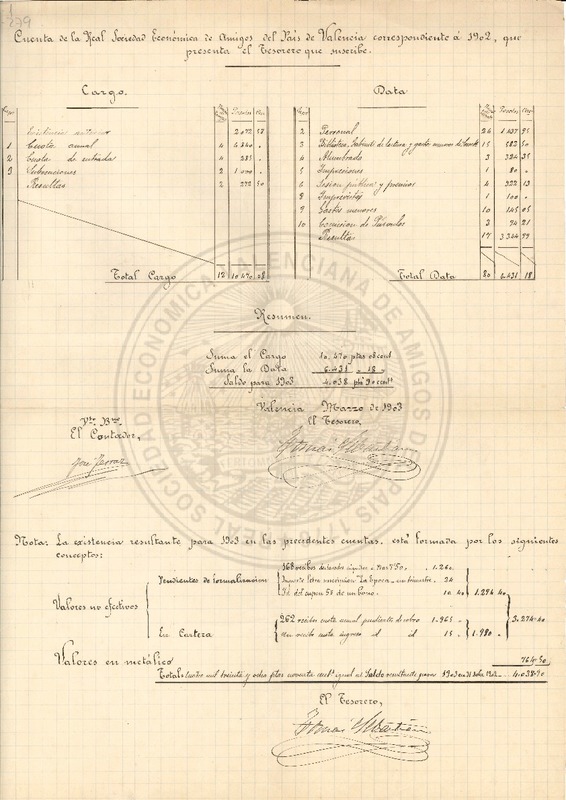 279
Cuenta de la Real Sociedad Económica de Amigos del País de Valencia correspondiente á 1902, que
presenta el Tesorero que suscribe.
Cargo. Data
Pesetas Cts. Pesetas Cts
Existencia anterior 2.072 58
1 Cuota anual 4 6.840 "
2 Cuota de entrada 4 285 "
3 Subvenciones 2 1.000 "
Resultas 2 272 50
Total Cargo 12 10.470 08
2 Personal 26 1.437 95
3 Biblioteca, Gabinete de lectura y gasto menores de 15 582 50
4 Alumbrado 3 324 35
5 Impresiones 1 80 "
6 Sesion pública y premios 4 322 13
8 Imprevistos 1 100 "
9 Gastos menores 10 145 05
10 Comision de Párvulos 3 94 21
Resultas 17 3.344 99
Total Data 80 6.431 18
Resumen.
Suma el Cargo 10.470 ptas 08 cent
Suma la Data 6.431 " 18 "
Saldo para 1903 4.038 pts 90 cent
Valencia Marzo de 1903
Vto. Bno. El Tesorero,
El Contador,
Nota: La existencia resultante para 1903 en las precedentes cuentas, está formada por los siguientes
conceptos:
168 recibos 7'50 1.260
Pendientes de formalizacion "La Epoca" un trimestre 24
Id. del cupon 58 de un bono. 10 40 1.294 40
Valores no efectivos 3.274 40
262 recibos cuota anual pendiente de cobro 1.965
En Cartera Un recibo cuota ingreso id id 15 1.980
Valores en metálico 764 50
Total: cuatro mil treinta y ocho ptas noventa cent igual al Saldo resultante para 1903 4.038 90
El Tesorero,
REAL SOCIEDAD ECONOMICA VALENCIANA DE AMIGOS DEL PAIS